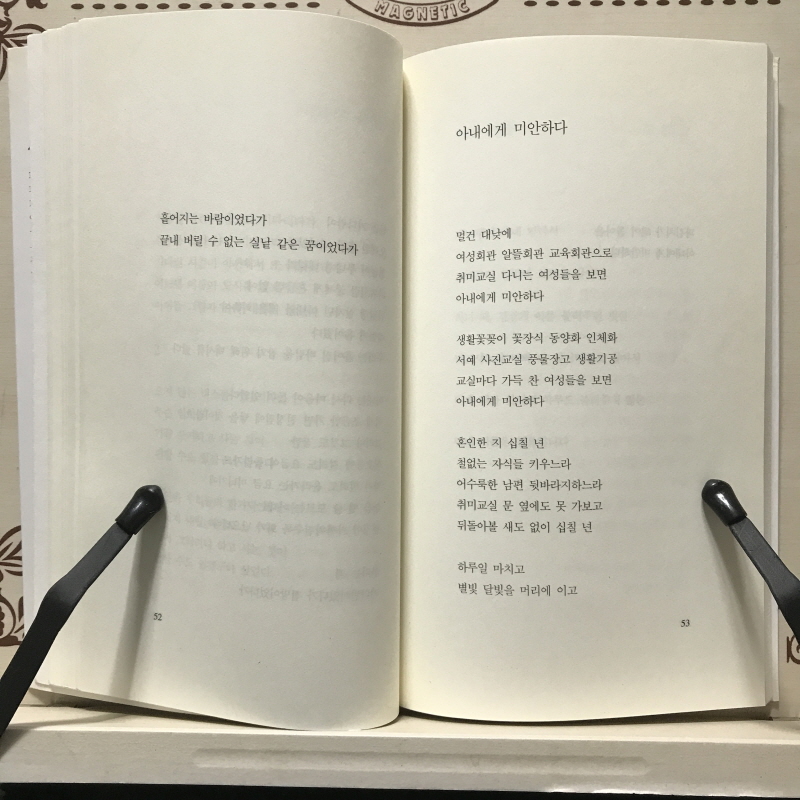 MAGNETIC
흩어지는 바람이었다가
끝내 버릴 수 없는 실낱 같은 꿈이었다가
52
아내에게 미안하다
멀건 대낮에
여성회관 알뜰회관 교육회관으로
취미교실 다니는 여성들을 보면
아내에게 미안하다
생활꽃꽂이 꽃장식 동양화 인체화
서예 사진교실 풍물장고 생활기공
교실마다 가득 찬 여성들을 보면
아내에게 미안하다
혼인한 지 십칠 년
철없는 자식들 키우느라
어수룩한 남편 뒷바라지하느라
취미교실 문 옆에도 못 가보고
뒤돌아볼 새도 없이 십칠 년
하루일 마치고
별빛 달빛을 머리에 이고
53